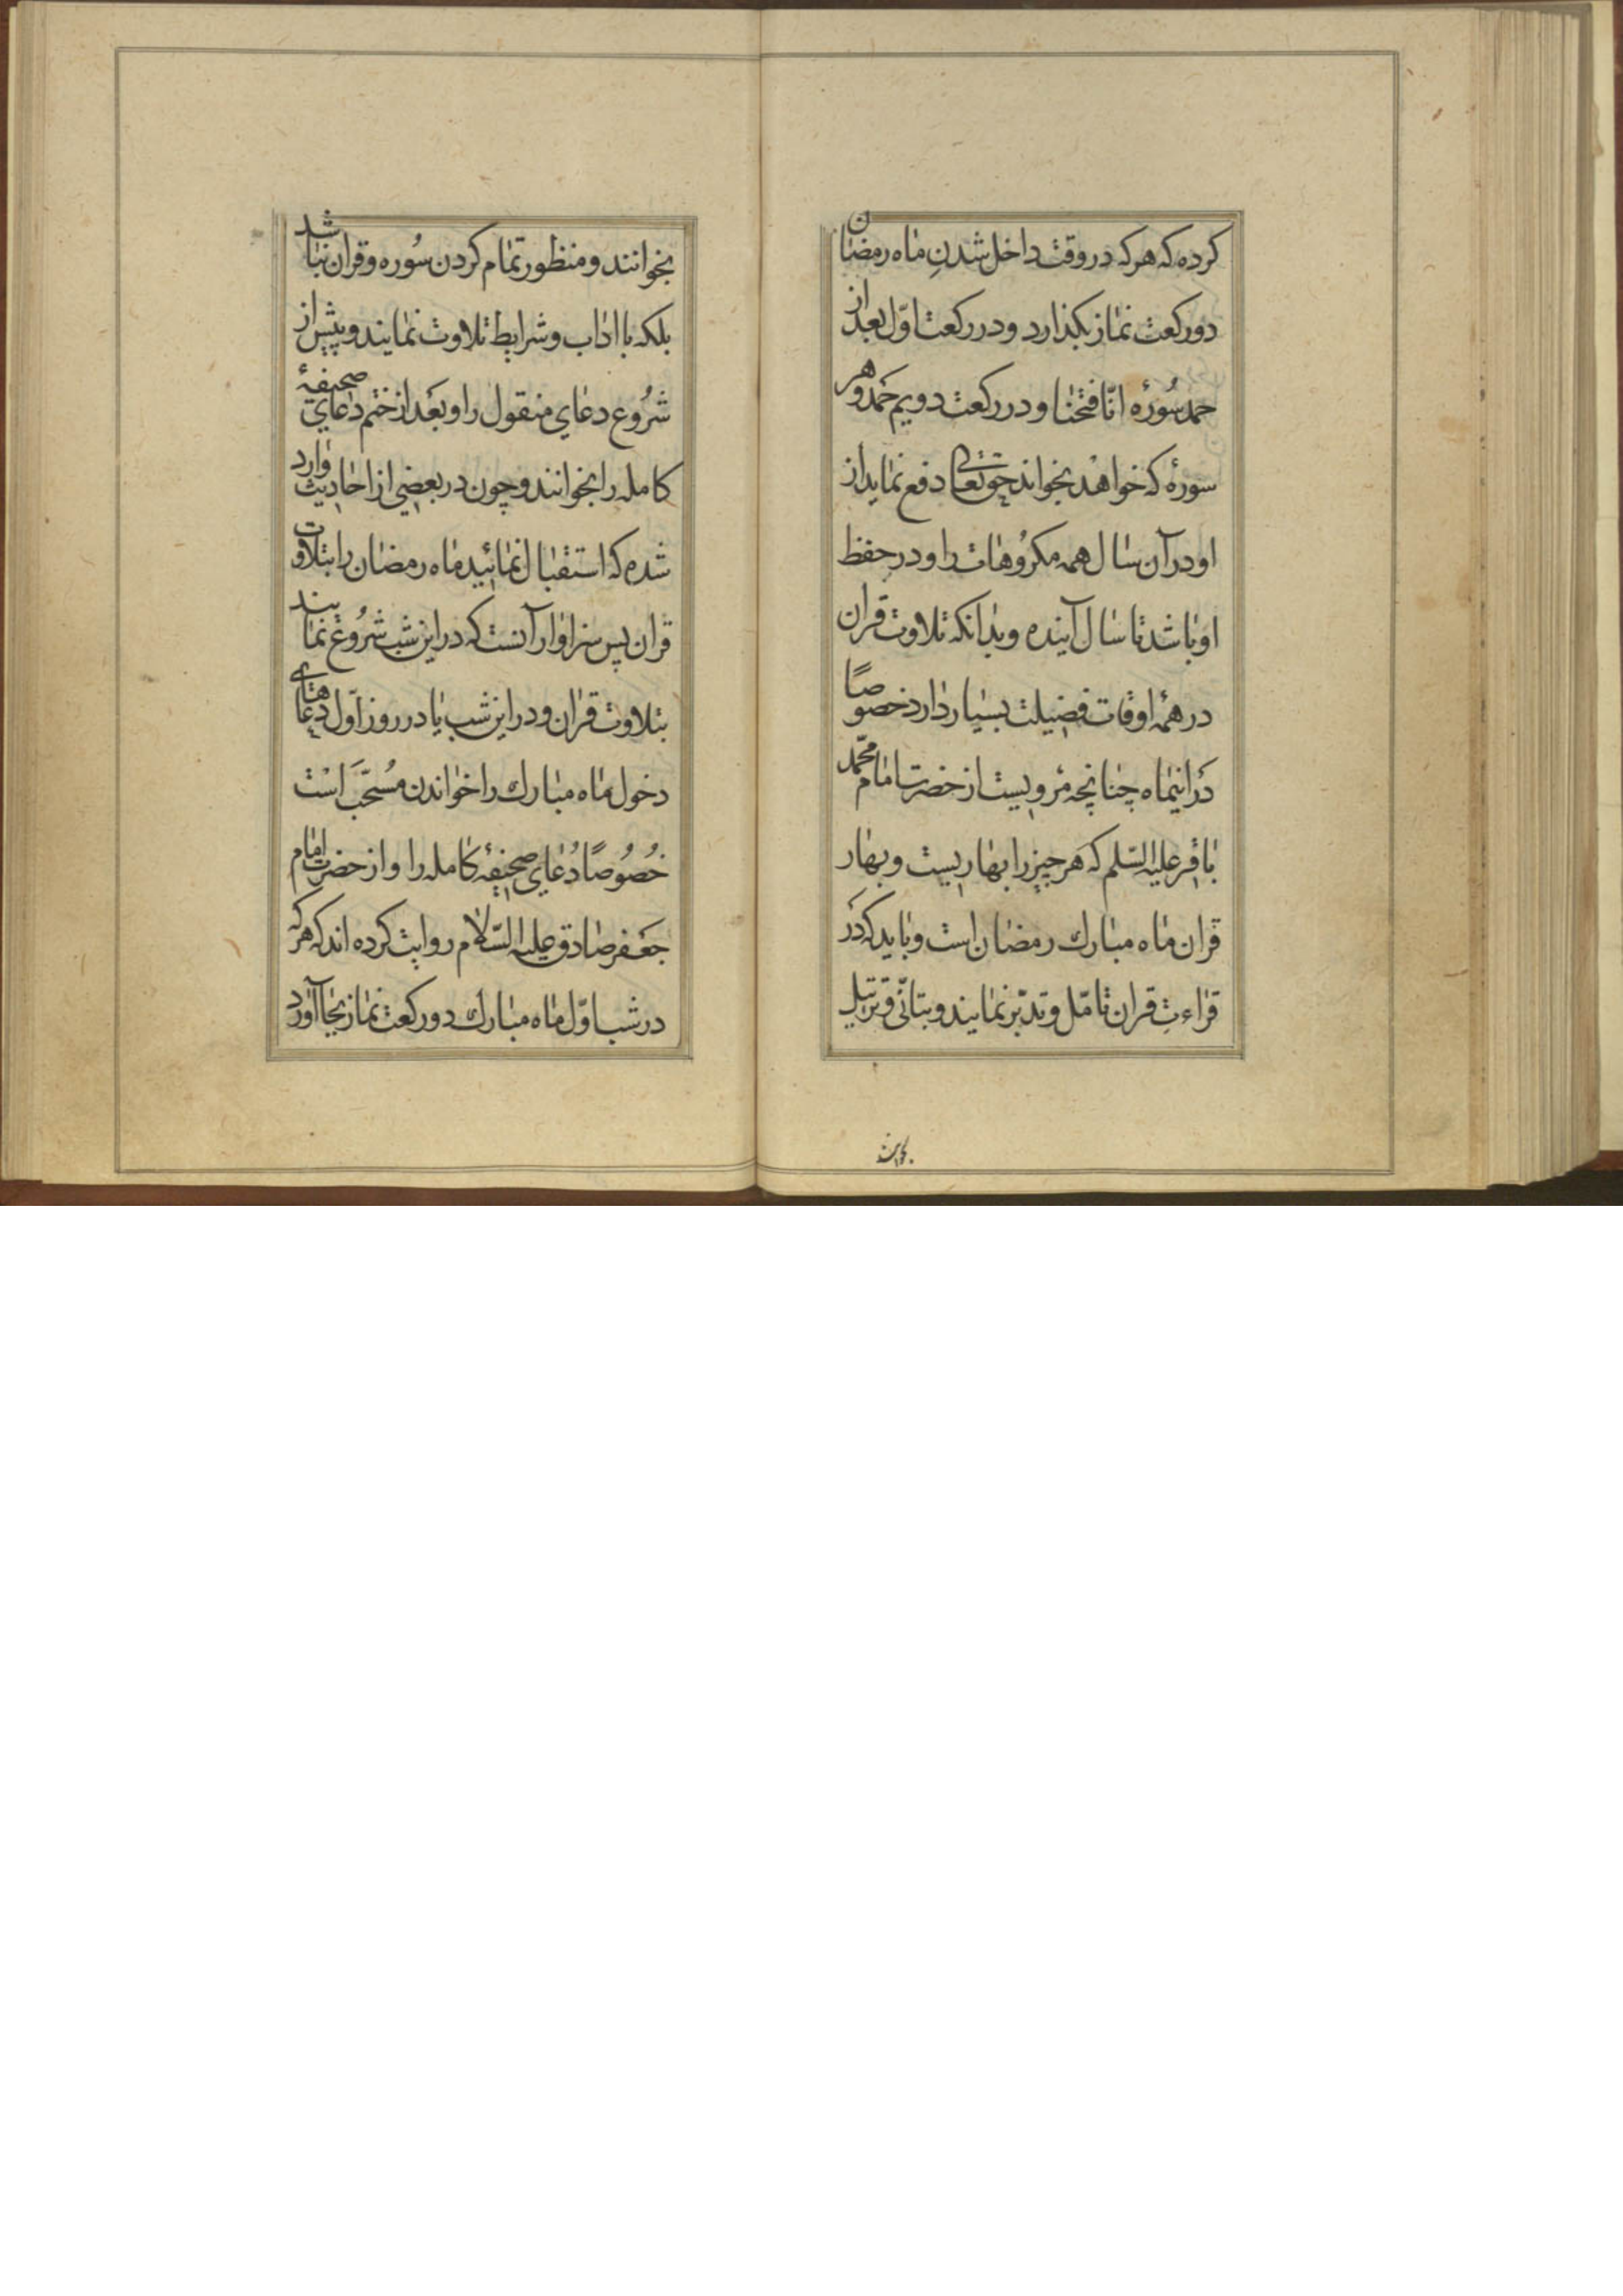 کرده که هرکه در وقت داخل شدنِ ماه رمضان
دو رکعت نماز بکذارد و در رکعت اوّل بعد از
حمد سُورهٔ انّا فتحنا و در رکعت دویم حَمد و هر
سورهٔ که خواهد بخواند حقتعالی دفع نماید از
او در آن سال همه مکرُوهات را و در حفظ
او باشد تا سال آینده و بدانکه تلاوت قران
در همهٔ اوقات فضیلت بسیار دارد خصوصًا
دَر اینماه چنانچه مرویست از حضرت امام محمّد
باقر علیه السّلم که هر چیز را بهاریست و بهار
قران ماه مبارك رمضان است و باید که دَر
قراءتِ قران تامّل و تدبّر نمایند و بتانّی و ترتیل
بخوانند
بخوانند و منظور تمام کردن سُوره و قران نباشد
بلکه با اداب و شرایط تلاوت نمایند و پیش از
شرُوع دعای منقول را و بعَد از ختم دعای صحیفهٔ
کامله را بخوانند و چون در بعضی از احادیث وارد
شده که استقبال نمائید ماه رمضان را بتلاوت
قران پس سزاوار آنست که در این شب شرُوع نمایند
بتلاوت قران و در این شب یا در روز اوّل دعاهای
دخول ماه مبارك را خواندن مُستحَبّ است
خُصُوصًا دُعای صحیفهٔ کامله را و از حضرت امام
جعَفر صادق علیه السّلام روایت کرده اند که هر که
در شب اوّل ماه مبارك دو رکعت نماز بجا آورد